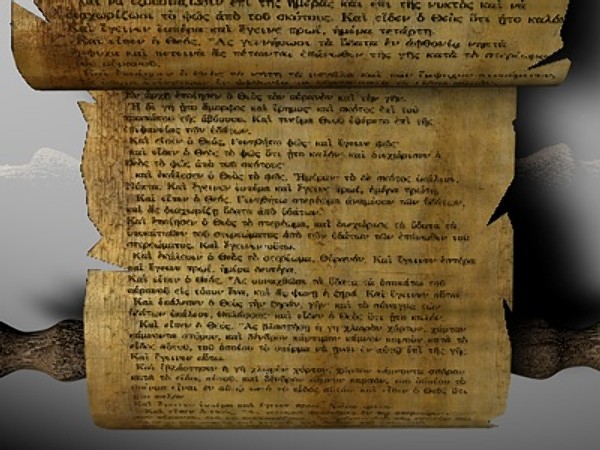 διαχωρίζωσι τὸ φῶς ἀπὸ τοῦ σκότους. Καὶ εἶδεν ὁ Θεὸς ὅτι ἦτο καλόν.
Καὶ ἔγεινεν ἑσπέρα καὶ ἔγεινε πρωΐ, ἡμέρα τετάρτη.
Καὶ εἶπεν ὁ Θεός, Ἂς γεννήσωσι τὰ ὕδατα ἐν ἀφθονίᾳ νηκτὰ
ἔμψυχα καὶ πετεινὰ ἂς πέτωνται ἐπάνωθεν τῆς γῆς κατὰ τὸ στερέωμα
τοῦ οὐρανοῦ.
Ἐν ἀρχῇ ἐποίησεν ὁ Θεὸς τὸν οὐρανὸν καὶ τὴν γῆν.
Ἡ δὲ γῆ ἦτο ἄμορφος καὶ ἔρημος· καὶ σκότος ἐπὶ τοῦ
προσώπου τῆς ἀβύσσου. Καὶ πνεῦμα Θεοῦ ἐφέρετο ἐπὶ τῆς
ἐπιφανείας τῶν ὑδάτων.
Καὶ εἶπεν ὁ Θεός, Γενηθήτω φῶς· καὶ ἔγεινε φῶς·
καὶ εἶδεν ὁ Θεὸς τὸ φῶς ὅτι ἦτο καλόν· καὶ διεχώρισεν ὁ
Θεὸς τὸ φῶς ἀπὸ τοῦ σκότους·
καὶ ἐκάλεσεν ὁ Θεὸς τὸ φῶς, Ἡμέραν· τὸ δὲ σκότος ἐκάλεσε,
Νύκτα. Καὶ ἔγεινεν ἑσπέρα καὶ ἔγεινε πρωΐ, ἡμέρα πρώτη.
Καὶ εἶπεν ὁ Θεός, Γενηθήτω στερέωμα ἀναμέσον τῶν ὑδάτων,
καὶ ἂς διαχωρίζῃ ὕδατα ἀπὸ ὑδάτων.
Καὶ ἐποίησεν ὁ Θεὸς τὸ στερέωμα, καὶ διεχώρισε τὰ ὕδατα τὰ
ὑποκάτωθεν τοῦ στερεώματος ἀπὸ τῶν ὑδάτων τῶν ἐπάνωθεν τοῦ
στερεώματος. Καὶ ἔγεινεν οὕτω.
Καὶ ἐκάλεσεν ὁ Θεὸς τὸ στερέωμα, Οὐρανόν. Καὶ ἔγεινεν ἑσπέρα
καὶ ἔγεινε πρωΐ, ἡμέρα δευτέρα.
Καὶ εἶπεν ὁ Θεός, Ἂς συναχθῶσι τὰ ὕδατα τὰ ὑποκάτω τοῦ
οὐρανοῦ εἰς τόπον ἕνα, καὶ ἂς φανῇ ἡ ξηρά. Καὶ ἔγεινεν οὕτω.
Καὶ ἐκάλεσεν ὁ Θεὸς τὴν ξηράν, γῆν· καὶ τὸ σύναγμα τῶν
ὑδάτων ἐκάλεσε, Θαλάσσας· καὶ εἶδεν ὁ Θεὸς ὅτι ἦτο καλόν.
Καὶ εἶπεν ὁ Θεός, Ἂς βλαστήσῃ ἡ γῆ χλωρὸν χόρτον, χόρτον
κάμνοντα σπόρον, καὶ δένδρον κάρπιμον κάμνον καρπὸν κατὰ τὸ
εἶδος αὐτοῦ, τοῦ ὁποίου τὸ σπέρμα νὰ ἦναι ἐν αὐτῷ ἐπὶ τῆς γῆς.
Καὶ ἔγεινεν οὕτω.
Καὶ ἐβλάστησεν ἡ γῆ χλωρὸν χόρτον, χόρτον κάμνοντα σπόρον
κατὰ τὸ εἶδος αὐτοῦ, καὶ δένδρον κάμνον καρπόν, τοῦ ὁποίου τὸ
σπέρμα εἶναι ἐν αὐτῷ κατὰ τὸ εἶδος αὐτοῦ· καὶ εἶδεν ὁ Θεὸς ὅτι
ἦτο καλόν.